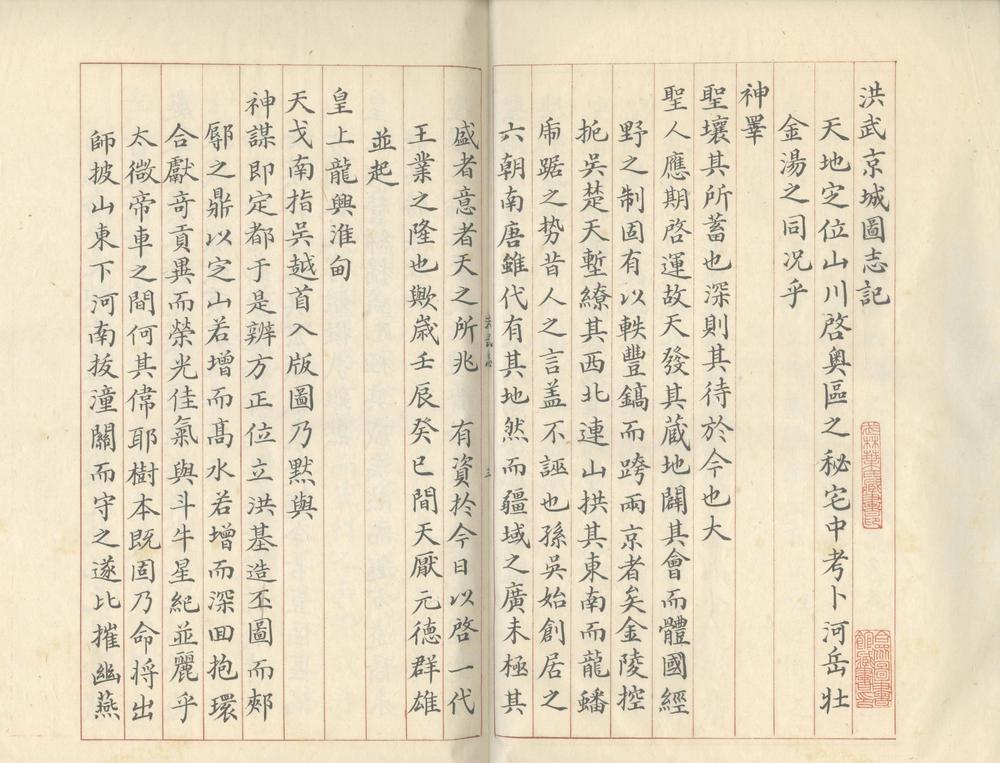 洪武京城圖志記
天地定位山川啓奧區之秘宅中考卜河岳壯
金湯之同况乎
神睪
聖壤其所蓄也深則其待於今也大
聖人應期啓運故天發其蔵地闢其會而體國經
野之制固有以軼豐鎬而跨兩京者矣金陵控
扼吳楚天塹繚其西北連山拱其東南而龍蟠
乕踞之势昔人之言盖不誣也孫吳始創居之
六朝南唐雖代有其地然而疆域之廣未極其
盛者意者天之所兆 有資扵今日以啓一代
王業之隆也歟嵗壬辰癸巳間天厭元德群雄
並起
皇上龍興淮甸
天戈南指吳越首入版圖乃默與
神謀即定都于是辨方正位立洪基造丕圖而郟
鄏之鼎以定山若增而髙水若增而深囬抱環
合獻奇貢異而榮光佳氣與斗牛星紀並麗乎
太微帝車之間何其偉耶樹本既固乃命将出
師披山東下河南拔潼關而守之遂比摧幽燕